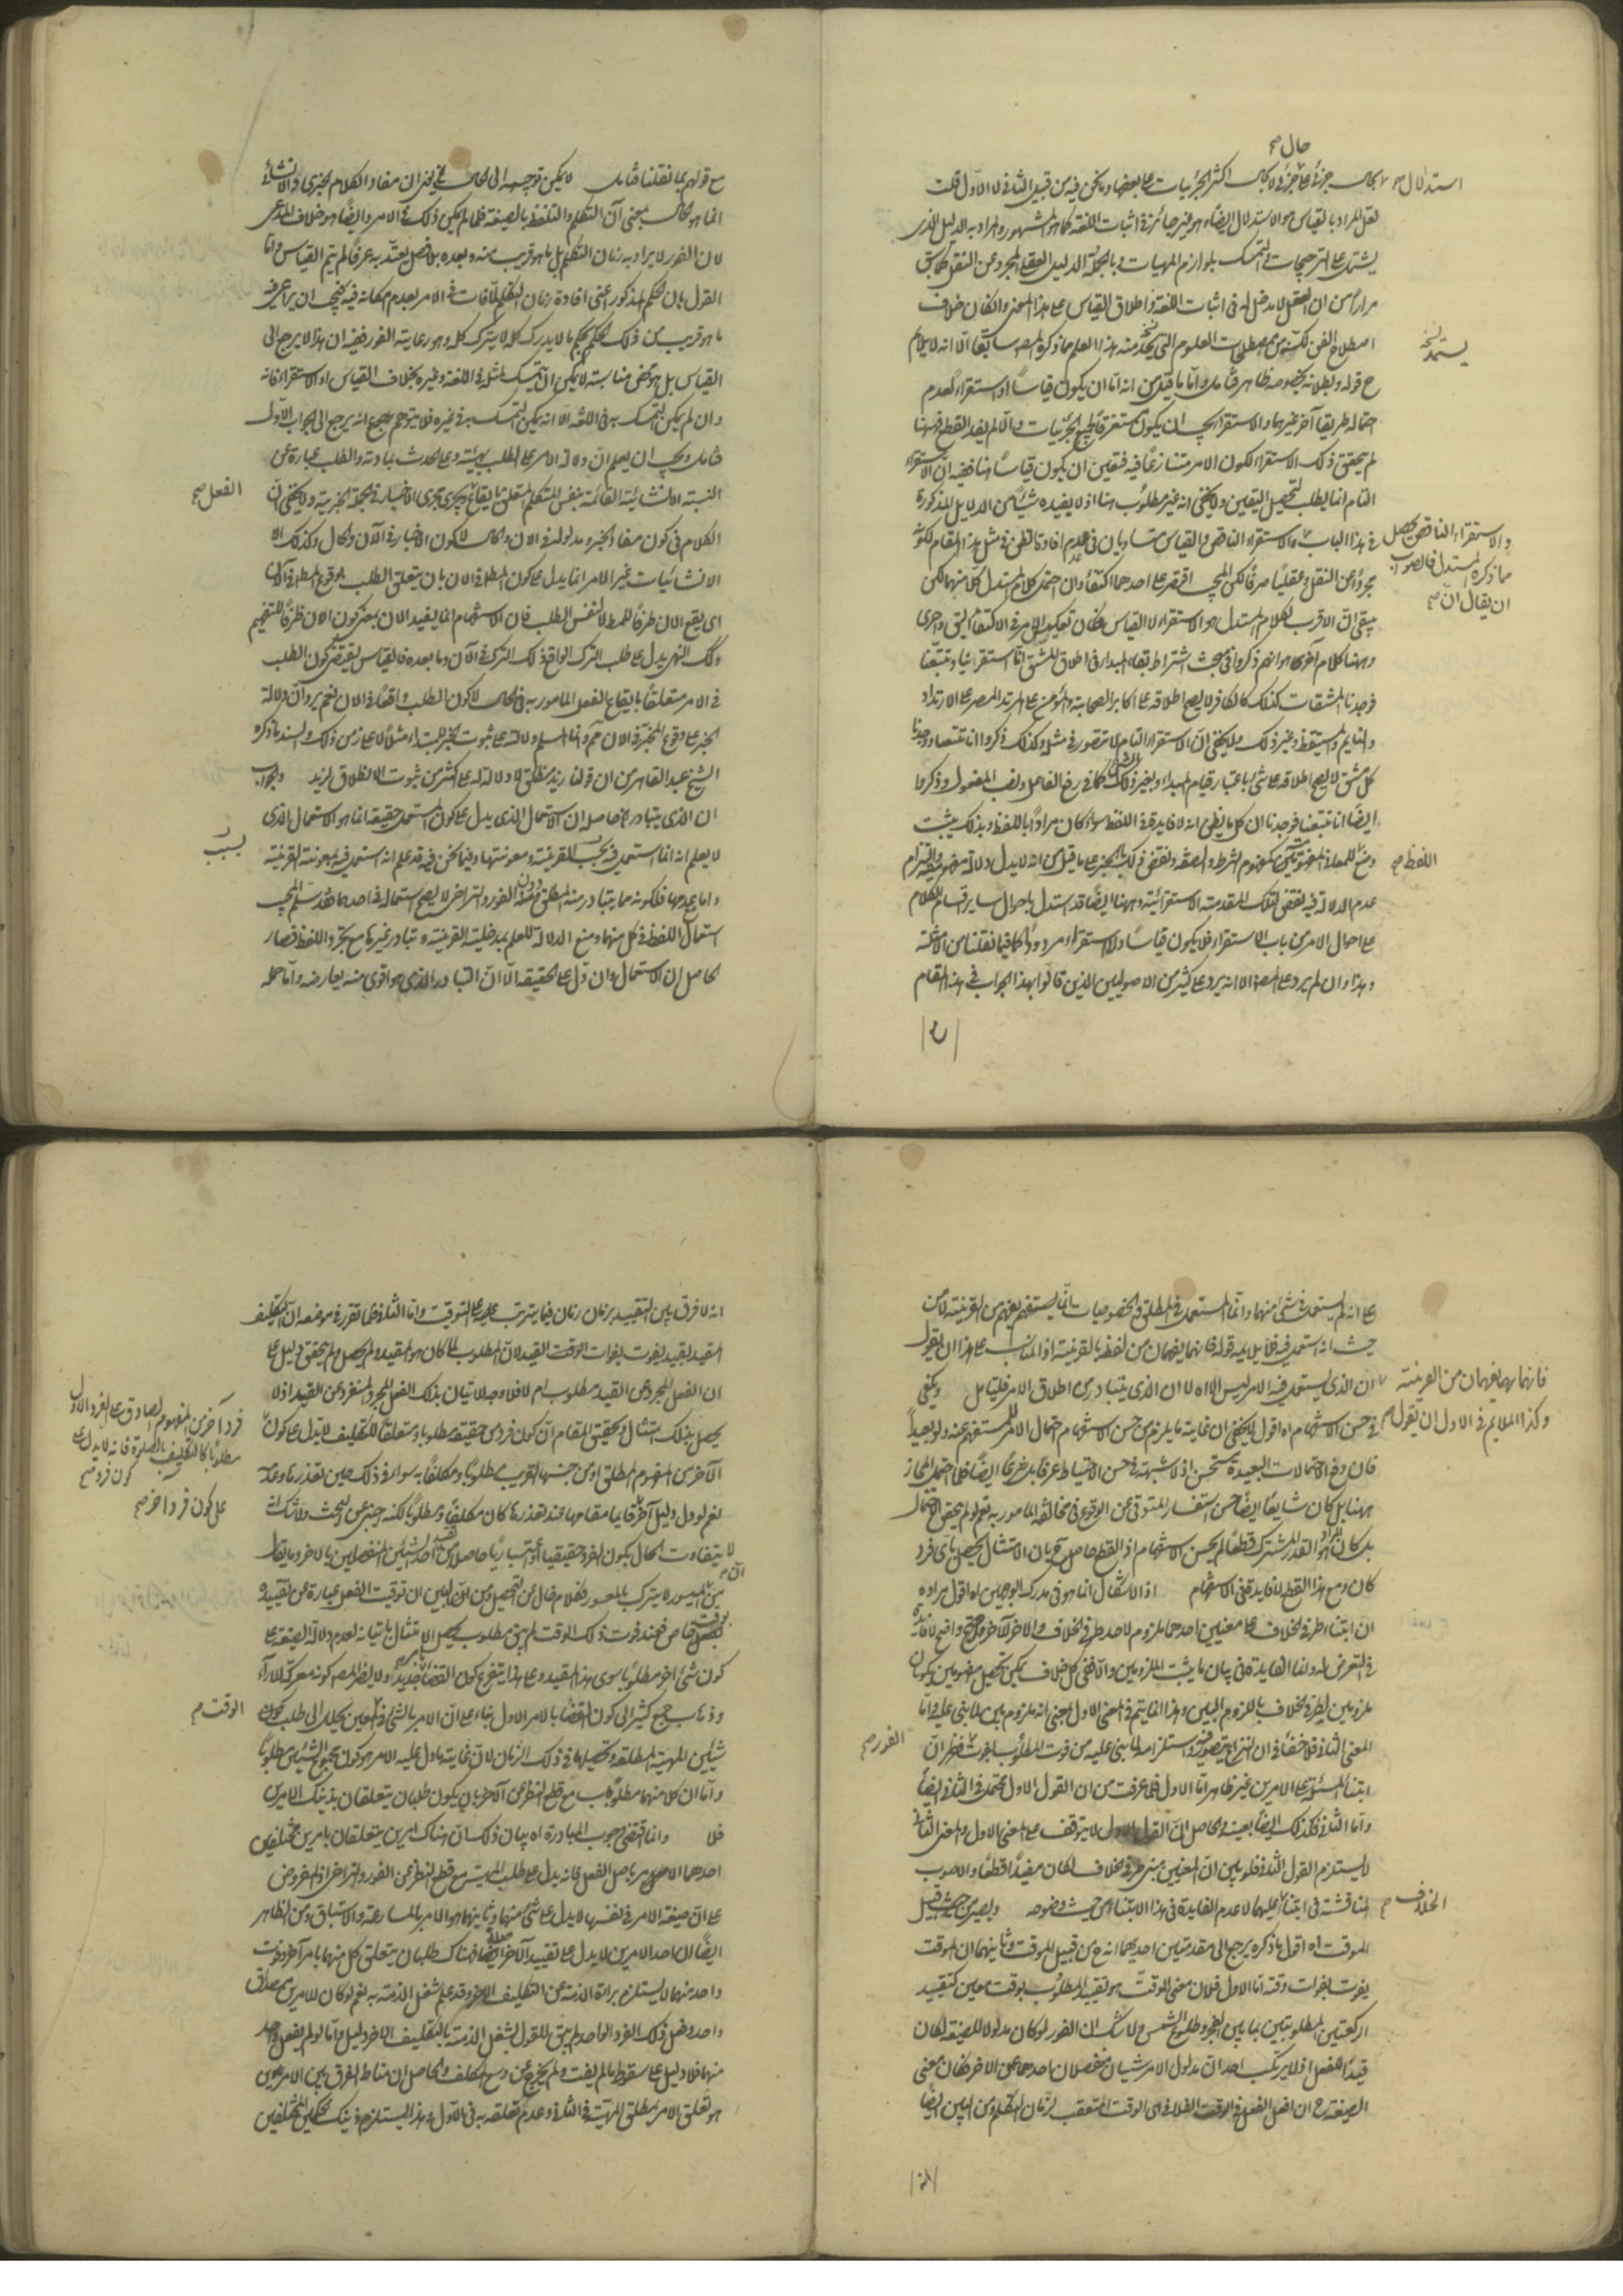 حال صح
استدلال صح بحال جزئي على جزئي لا بحال اكثر الجزئيات على بعضها وما نحن فيه من قبيل الثاني لا الاول قلت
لعل المراد بالقياس هو الاستدلال ايضا وهو غير جائز في اثبات اللغة كما هو المشهور والمراد به الدليل الذي
يشتمل على الترجيحات في التمسك بلوازم المهيات وبالجملة الدليل العقلي المجرد عن النقل كما سبق
مرارا من ان العقل لا مدخل له في اثبات اللغة واطلاق القياس على هذا المعنى وان كان خلاف
اصطلاح الفن لكنه من مصطلحات العلوم التي يستمد منه هذا العلم ما ذكره المص سابقا الا انه لا يلائم
يستمد نسخه
ح قوله وبطلانه بخصوصه ظاهر فتأمل واما ما قيل من انه اما ان يكون قياسا او استقراء لعدم
احتماله طريقا آخر غيرهما والاستقراء يجب ان يكون مستغرقا لجميع الجزئيات والا لم يفد القطع وههنا
لم يتحقق ذلك الاستقراء لكون الامر متنازعا فيه فتعين ان يكون قياسا هنا ففيه ان الاستقراء
التام انما يطلب لتحصيل اليقين ولا يخفى انه غير مطلوب هنا اذ لا يفيده شيئا من الدلايل المذكورة
في هذا الباب والاستقراء الناقص والقياس متساويان في عدم افادة القطع في مثل هذا المقام لكونه
والاستقراء الناقص يحصل
مما ذكره المستدل فالصواب
ان يقال ان صح
مجردا عن النقل وعقليا صرفا لكن المجيب اقتصر على احدهما اكتفاء وان احتمل كلام المستدل كلا منهما لكن
يبقى ان الاقرب لكلام المستدل هو الاستقراء لا القياس فكان تعكيس الامر في الاكتفاء اليق واحرى
وههنا كلام آخر هو انهم ذكروا في بحث اشتراط بقاء المبدا في اطلاق المشتق انا استقرأنا وتتبعنا
فوجدنا المشتقات كذلك كالكافر لا يصح اطلاقه على اكابر الصحابة والمؤمن على المرتد المصر على الارتداد
والنايم والمستيقظ وغير ذلك ولا يخفى ان الاستقراء التام لا يتصور في مثله وكذلك ذكروا انا تتبعنا ووجدنا
كل مشتق لا يصح اطلاقه على شيء باعتبار قيام المبدا ولغير ذلك كما في رفع الفاعل ونصب المفعول وذكروا
ايضا انا تتبعنا فوجدنا ان كل ما يظن انه لا فايدة في اللفظ سواه كان مرادا باللفظ وبذلك يثبت
اللفظ صح
عدم الدلالة فيه لنقض تلك المقدمة الاستقرائية وههنا ايضا قد استدل باحوال ساير اقسام الكلام
على احوال الامر من باب الاستقراء فلا يكون قياسا والاستقراء مردود كما فيما نقلنا من الامثلة
وهذا وان لم يرد على المص الا انه يرد على كثير من الاصوليين الذين قالوا بهذا الجواب في هذا المقام
مع قولهم بما نقلنا فتأمل لا يمكن توجيهه الى الحال لا يخفى ان مفاد الكلام الخبري والانشائي
انما هو الحال بمعنى آن التكلم والتلفظ بالصيغة فلما لم يمكن ذلك في الامر وايضا هو خلاف المدعى
لان الفور لا يراد به زمان التكلم بل ما هو قريب منه وبعده بلا فصل يعتد به عرفا لم يتم القياس واما
القول بان الحكم المذكور اعني افادة زمان التكلم لما فات في الامر لعدم امكانه فيه فيجب ان يراعى فيه
ما هو قريب من ذلك الحكم بحكم ما لا يدرك كله لا يترك كله وهو رعاية الفور ففيه ان هذا لا يرجع الى
القياس بل هو محض مناسبة لا يمكن ان يتمسك بمثله في اللغة وغيره بخلاف القياس او الاستقراء فانه
وان لم يكن التمسك به في اللغة الا انه يمكن التمسك به في غيره فلا يتوهم انه يرجع الى الجواب الاول
فتأمل ويجب ان يعلم ان دلالة الامر على الطلب بهيئته وعلى الحدث بمادته والطلب عبارة عن
النسبة الانشائية القائمة بنفس المتكلم المتعلق بايقاع ويجري مجرى الاخبار في الجملة الخبرية ولا يخفى ان
الفعل صح
الكلام في كون مفاد الخبر ومدلوله في الان والحال لا كون الاخبار في الآن والحال وكذلك الا
الانشائيات غير الامر انما يدل على كون المط في الان بان يتعلق الطلب بوقوع المط في الآن
اى يقع الان ظرفا للمط لا لنفس الطلب فان الاستفهام انما يفيد الان بمعنى كون الان ظرفا للتفهيم
وكك النهي يدل على طلب الترك الواقع ذلك الترك في الآن وما بعده فالقياس يقتضي كون الطلب
في الامر متعلقا بايقاع الفعل المامور به في الحال لا كون الطلب واقعا في الان نعم يرد ان دلالة
الخبر على وقوع المخبر في الان مم وانما المسلم دلالته على ثبوت الخبر للمبتدا مثلا لا على ازيد من ذلك والسند ما ذكره
الشيخ عبد القاهر من ان قولنا زيد منطلق لا دلالة له على اكثر من ثبوت الانطلاق لزيد والجواب
ان الذي يتبادر حاصله ان الاستعمال الذي يدل على كون المستعمل حقيقة انما هو الاستعمال الذي
لا يعلم انه انما استعمل فيه بحسب القرينة ومعونتها وفيما نحن فيه قد علم انه استعمل فيه بمعونة القرينة
بسبب
استعمال اللفظ في كل منهما ومنع الدلالة للعلم بمدخلية القرينة وتبادر غيرهما مع تجرد اللفظ فصار
الحاصل ان الاستعمال وان دل على الحقيقة الا ان التبادر الذي هو اقوى منه يعارضه واما حمله
على انه لم يستعمل في شيء منهما وانما المستعمل فيه المطلق والخصوصيات انما يستفهم بفهم من القرينة لا من
حيث انه استعمل فيه فلا يلايمه قوله فانهما يفهمان من لفظه بالقرينة اذ المناسب على هذا ان يقول
فانهما يفهمان من القرينة
وكذا الملايم في الاول ان يقول صح
ان الذي يستعمل فيه الامر ليس الا اه لا ان الذي يتبادر من اطلاق الامر فليتأمل ويكفي
في حسن الاستفهام اه اقول لا يخفى ان غاية ما يلزم من حسن الاستفهام احتمال الامر المستفهم عنه ولو بعيدا
فان رفع الاحتمالات البعيدة مستحسن اذ لا شبهة في حسن الاحتياط عرفا بل شرعا ايضا فلما احتمل المجاز
ههنا بل كان شايعا ايضا حسن استفسار المتوقي عن الوقوع في مخالفة المامور به نعم لو لم يتحقق احتمال
بل كان المراد هو القدر المشترك قطعا لم يحسن الاستفهام اذ القطع حاصل ح بان الامتثال يحصل باى فرد
كان ومع هذا القطع لا فايدة في الاستفهام اذ الاشكال انما هو في مدرك الوجهين اه اقول مراده
ان ابتناء طرفي الخلاف على معنيين احدهما ملزوم لاحد طرفي الخلاف والاخر للآخر واضح لا فائدة
في التعرض له وانما الفايدة في بيان ما يثبت الملزومين والا ففي كل خلاف يمكن تحصيل مفهومين يكونان
ملزومين لطرفي الخلاف باللزوم البين وهذا انما يتم في المعنى الاول بمعنى انه ملزوم بين لما بني عليه واما
المعنى الثاني فلا خفاء في ان النزاع يتصور فيه واستلزامه لما بني عليه من فوت المطلوب بفوت فظهر ان
الفور صح
ابتناء المسئلة على الامرين غير ظاهر اما الاول فلما عرفت من ان القول الاول محتمل في الثاني ايضا
واما الثاني فكذلك ايضا بعينه والحاصل ان القول الاول لا يتوقف على المعنى الاول والمعنى الثاني
لا يستلزم القول الثاني فلو بين ان المعنيين مبنى طرفي الخلاف لكان مفيدا قطعا والاصوب
المناقشة في ابتناء عليهما لا عدم الفايدة في هذا الابتناء من حيث وضوحه ويصير من حيث قبيل
الخلاف صح
الموقت اه اقول ما ذكره يرجع الى مقدمتين احديهما انه ح من قبيل الموقت وثانيهما ان الموقت
يفوت بفوات وقته اما الاول فلان معنى الموقت هو تقييد المطلوب بوقت معين كتقييد
الركعتين المطلوبتين بما بين الفجر وطلوع الشمس ولا شك ان الفور لو كان مدلولا للصيغة لكان
قيدا للفعل اذ لا يرتكب احد ان مدلول الامر شيئان منفصلان احدهما عن الاخر فكان معنى
الصيغة ح ان افعل الفعل في الوقت الفلاني اى الوقت المتعقب لزمان التكلم ومن البين ايضا
انه لا فرق بين التقييد بزمان زمان فيما يترتب عليه على التوقيت واما الثاني فلما تقرر في موضعه ان التكليف
المقيد بقيد يفوت بفوات الوقت القيد لان المطلوب لما كان هو المقيد ولم يحصل ولم يتحقق دليل على
ان الفعل المجرد عن القيد مطلوب ام لا فلا وجه للاتيان بذلك الفعل المجرد المنفرد عن القيد اذ لا
يحصل بذلك امتثال وتحقيق المقام ان كون فرد من حقيقة مطلوبا ومتعلقا للتكليف لا يدل على كون
فردا آخر من المفهوم الصادق على الفرد الاول
مطلوبا كالتكليف بالصلوة فانه لا يدل على
كون فرد صح
على كون فرد اخر صح
نعم لو دل دليل آخر قائما مقامها عند تعذرها كان مكلفا ومطلوبا لكنه اجنبي عن البحث ولا شك انه
لا يتفاوت الحال بكون الفرد حقيقيا او اعتباريا حاصلا من تقييد احد الشيئين المنفصلين بالاخر وما يقال
من ان الميسور لا يترك بالمعسور فكلام خال عن التحصيل ومن البين ان توقيت الفعل عبارة عن تقييده
بوقت خاص فعند فوت ذلك الوقت لم يبق مطلوب يحصل الامتثال باتيانه لعدم دلالة الصيغة على
كون شيء اخر مطلوبا سوى هذا المقيد وعلى هذا يتفرع كون القضاء بامر جديد ولا يضر المص كونه معركة للاراء
وذهاب جمع كثير الى كون القضاء بالامر الاول بناء على ان الامر بالشيء في المعين ينحل الى طلب كون
الوقت صح
شيئين المهية المطلقة وتحصيلها في ذلك الزمان لان غاية ما دل عليه الامر هو كون مجموع الشيئين مطلوبا
واما ان كلا منهما مطلوب مع قطع النظر عن الآخر بان يكون طلبان يتعلقان بذينك الامرين
فلا وانما اقتضى وجوب المبادرة اه بيان ذلك ان هناك امرين يتعلقان بامرين مختلفين
احدهما الامر باصل الفعل فانه يدل على طلب المهية مع قطع النظر عن الفور والتراخي اذ المفروض
على ان صيغة الامر في نفسها لا يدل على شيء منهما وثانيهما هو الامر بالمسارعة والاستباق ومن الظاهر
ايضا ان احد الامرين لا يدل على تقييد الآخر اصلا فهناك طلبان يتعلق كل منهما بامر آخر وفوت
واحد منهما لا يستلزم براءة الذمة عن التكليف الاخر وقد علم شغل الذمة به نعم لو كان للامرين مصداق
واحد وفعل ذلك الفرد الواحد لم يبق للقول بشغل الذمة بالتكليف الاخر دليل واما لو لم يفعل واحد
منهما فلا دليل على سقوط ما لم يفت ولم يخرج عن وسع المكلف والحاصل ان مناط الفرق بين الامرين
هو تعلق الامر بمطلق المهية في الثاني وعدم تعلقه به في الاول وهذا يستلزم ذينك الحكمين المختلفين